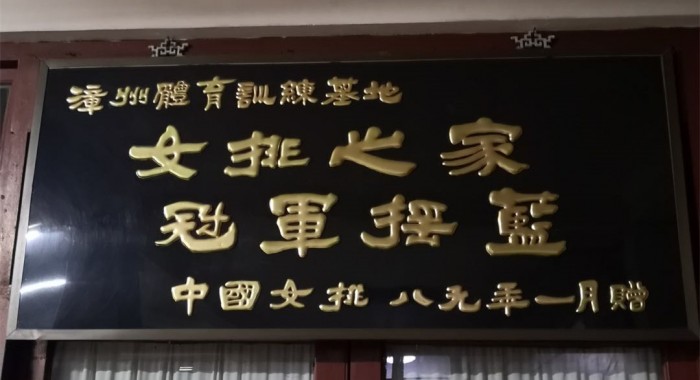 漳州體育訓練基地
女排之家
冠軍摇藍
中國女排 八九年一月贈